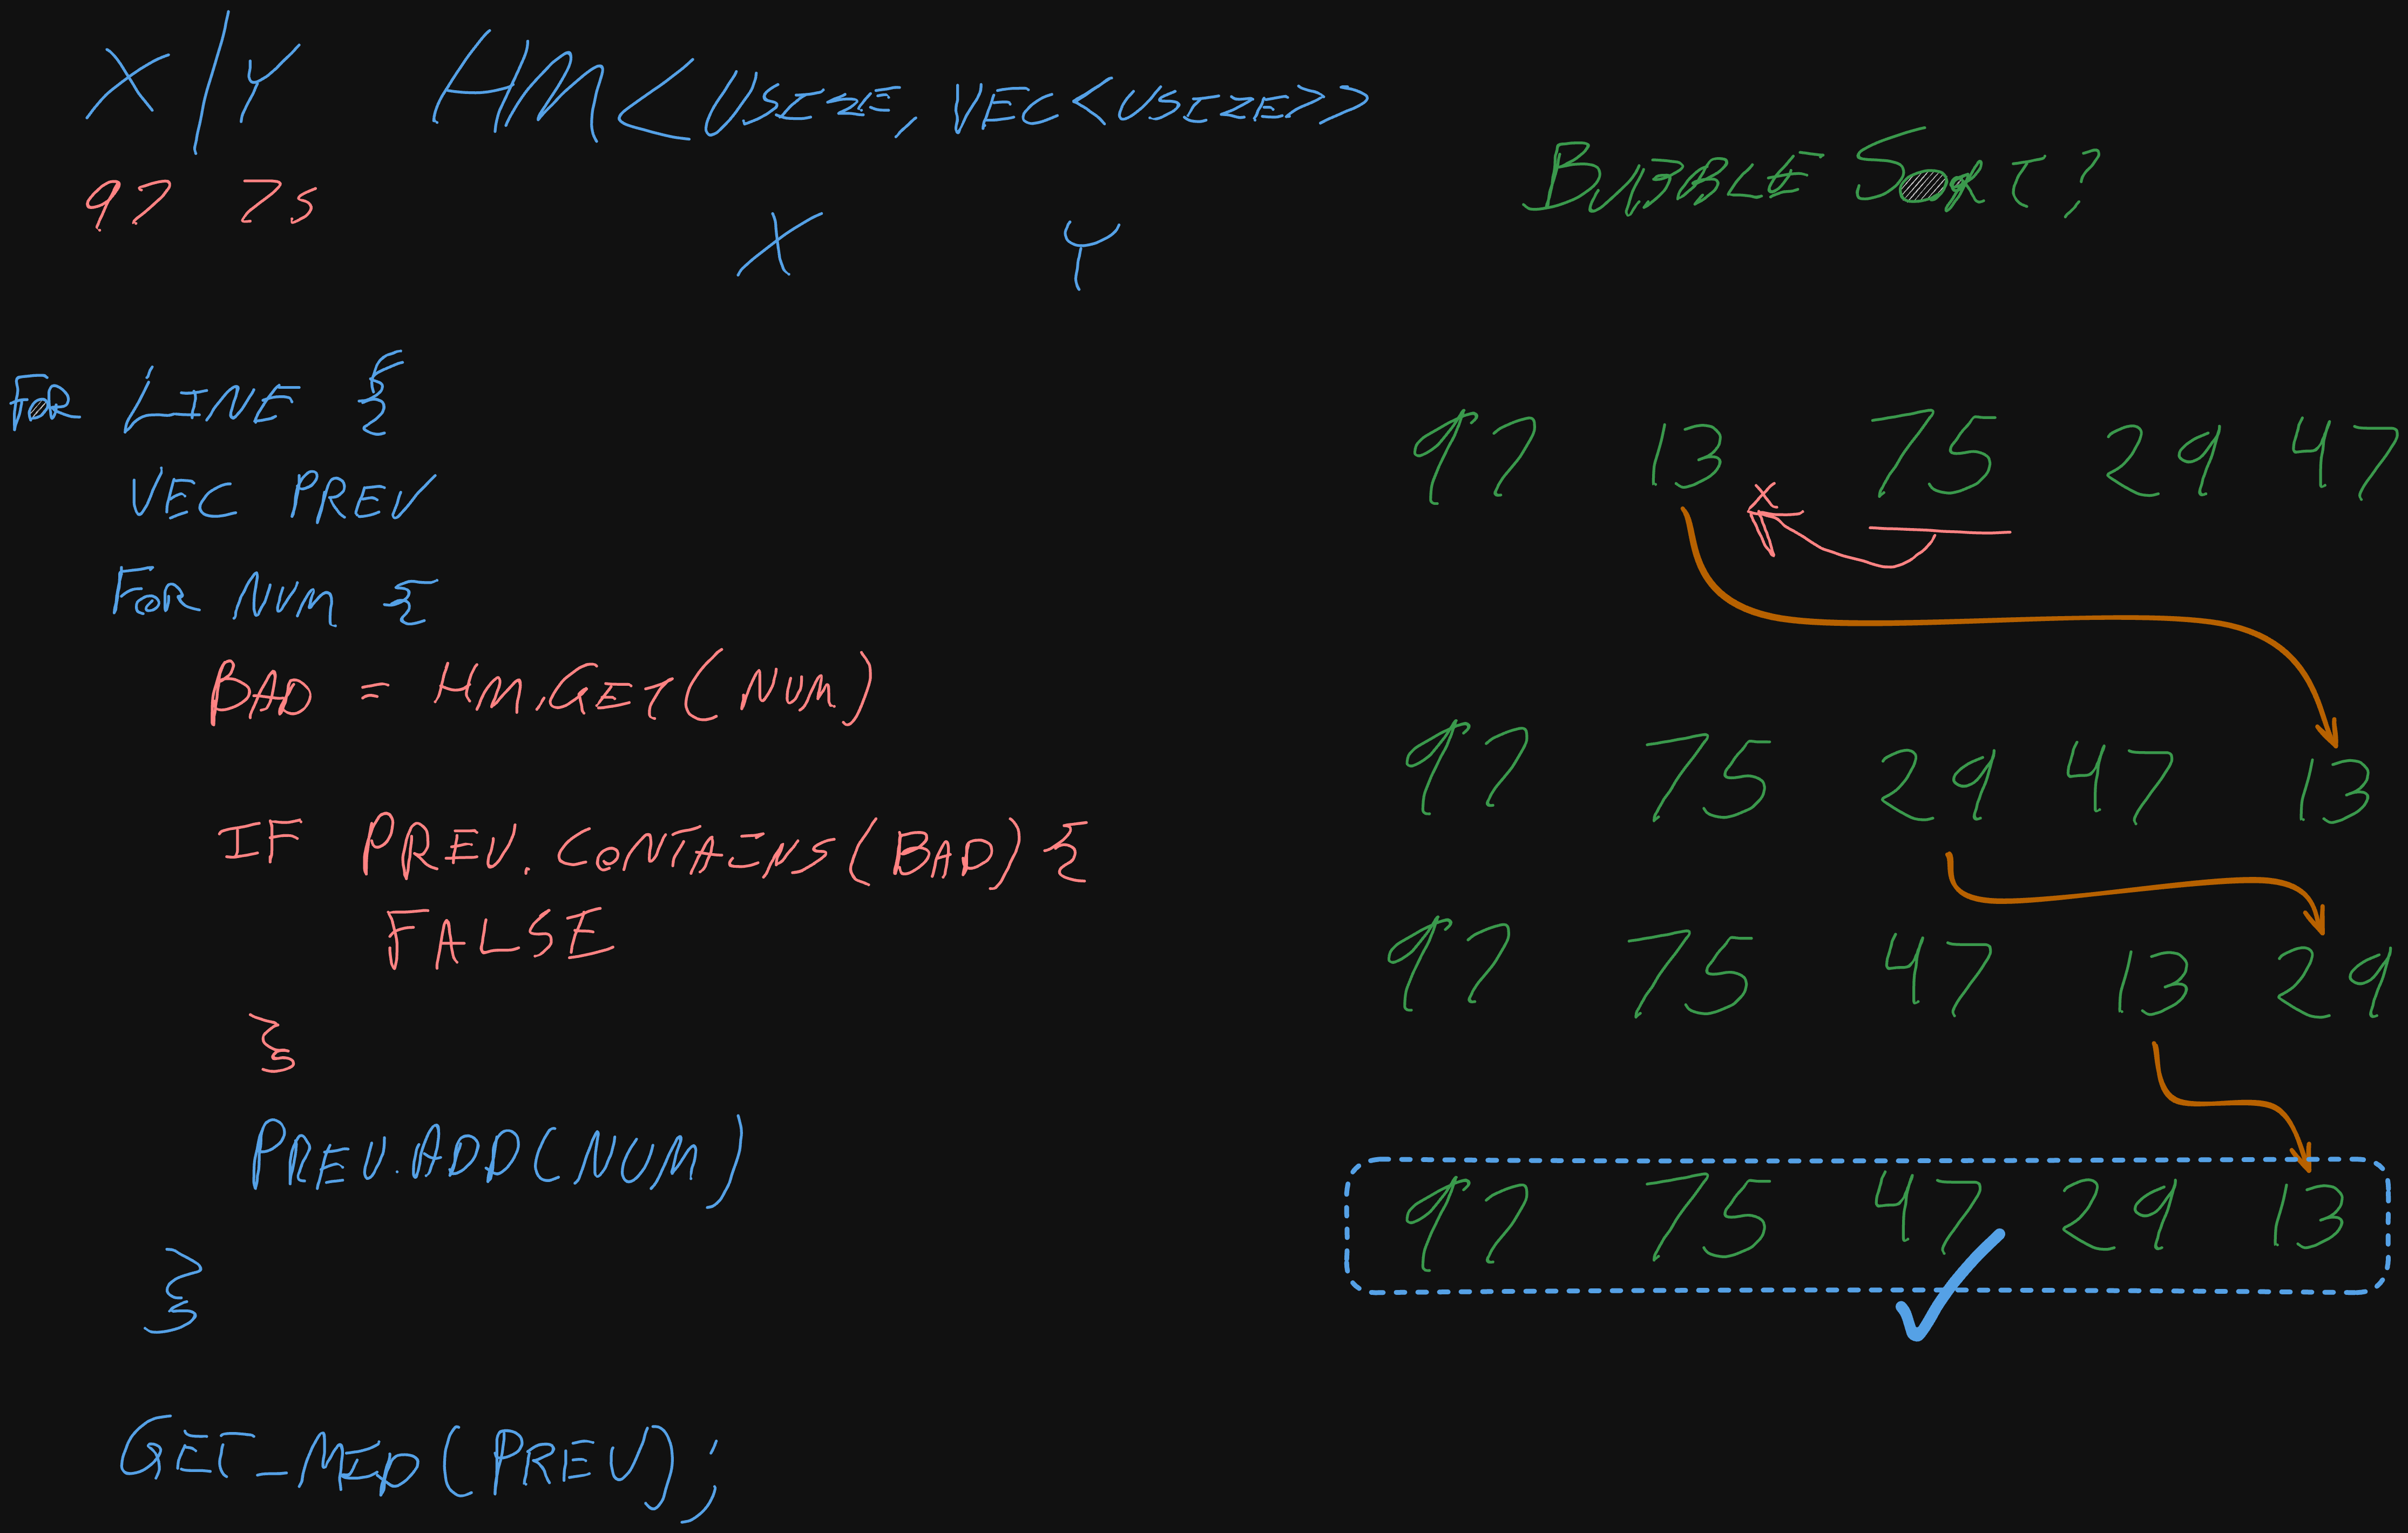 X/Y HM<USIZE, VEC<USIZE>>
97 75
X Y
FOR LINE {
VEC PREV
FOR NUM {
BAD = HM.GET(NUM)
IF PREV.CONTAINS(BAD) {
FALSE
}
PREV.ADD(NUM)
}
GET_MID(PREV);
BUBBLE SORT?
97 13 75 29 47
97 75 29 47 13
97 75 47 13 29
97 75 47 29 13